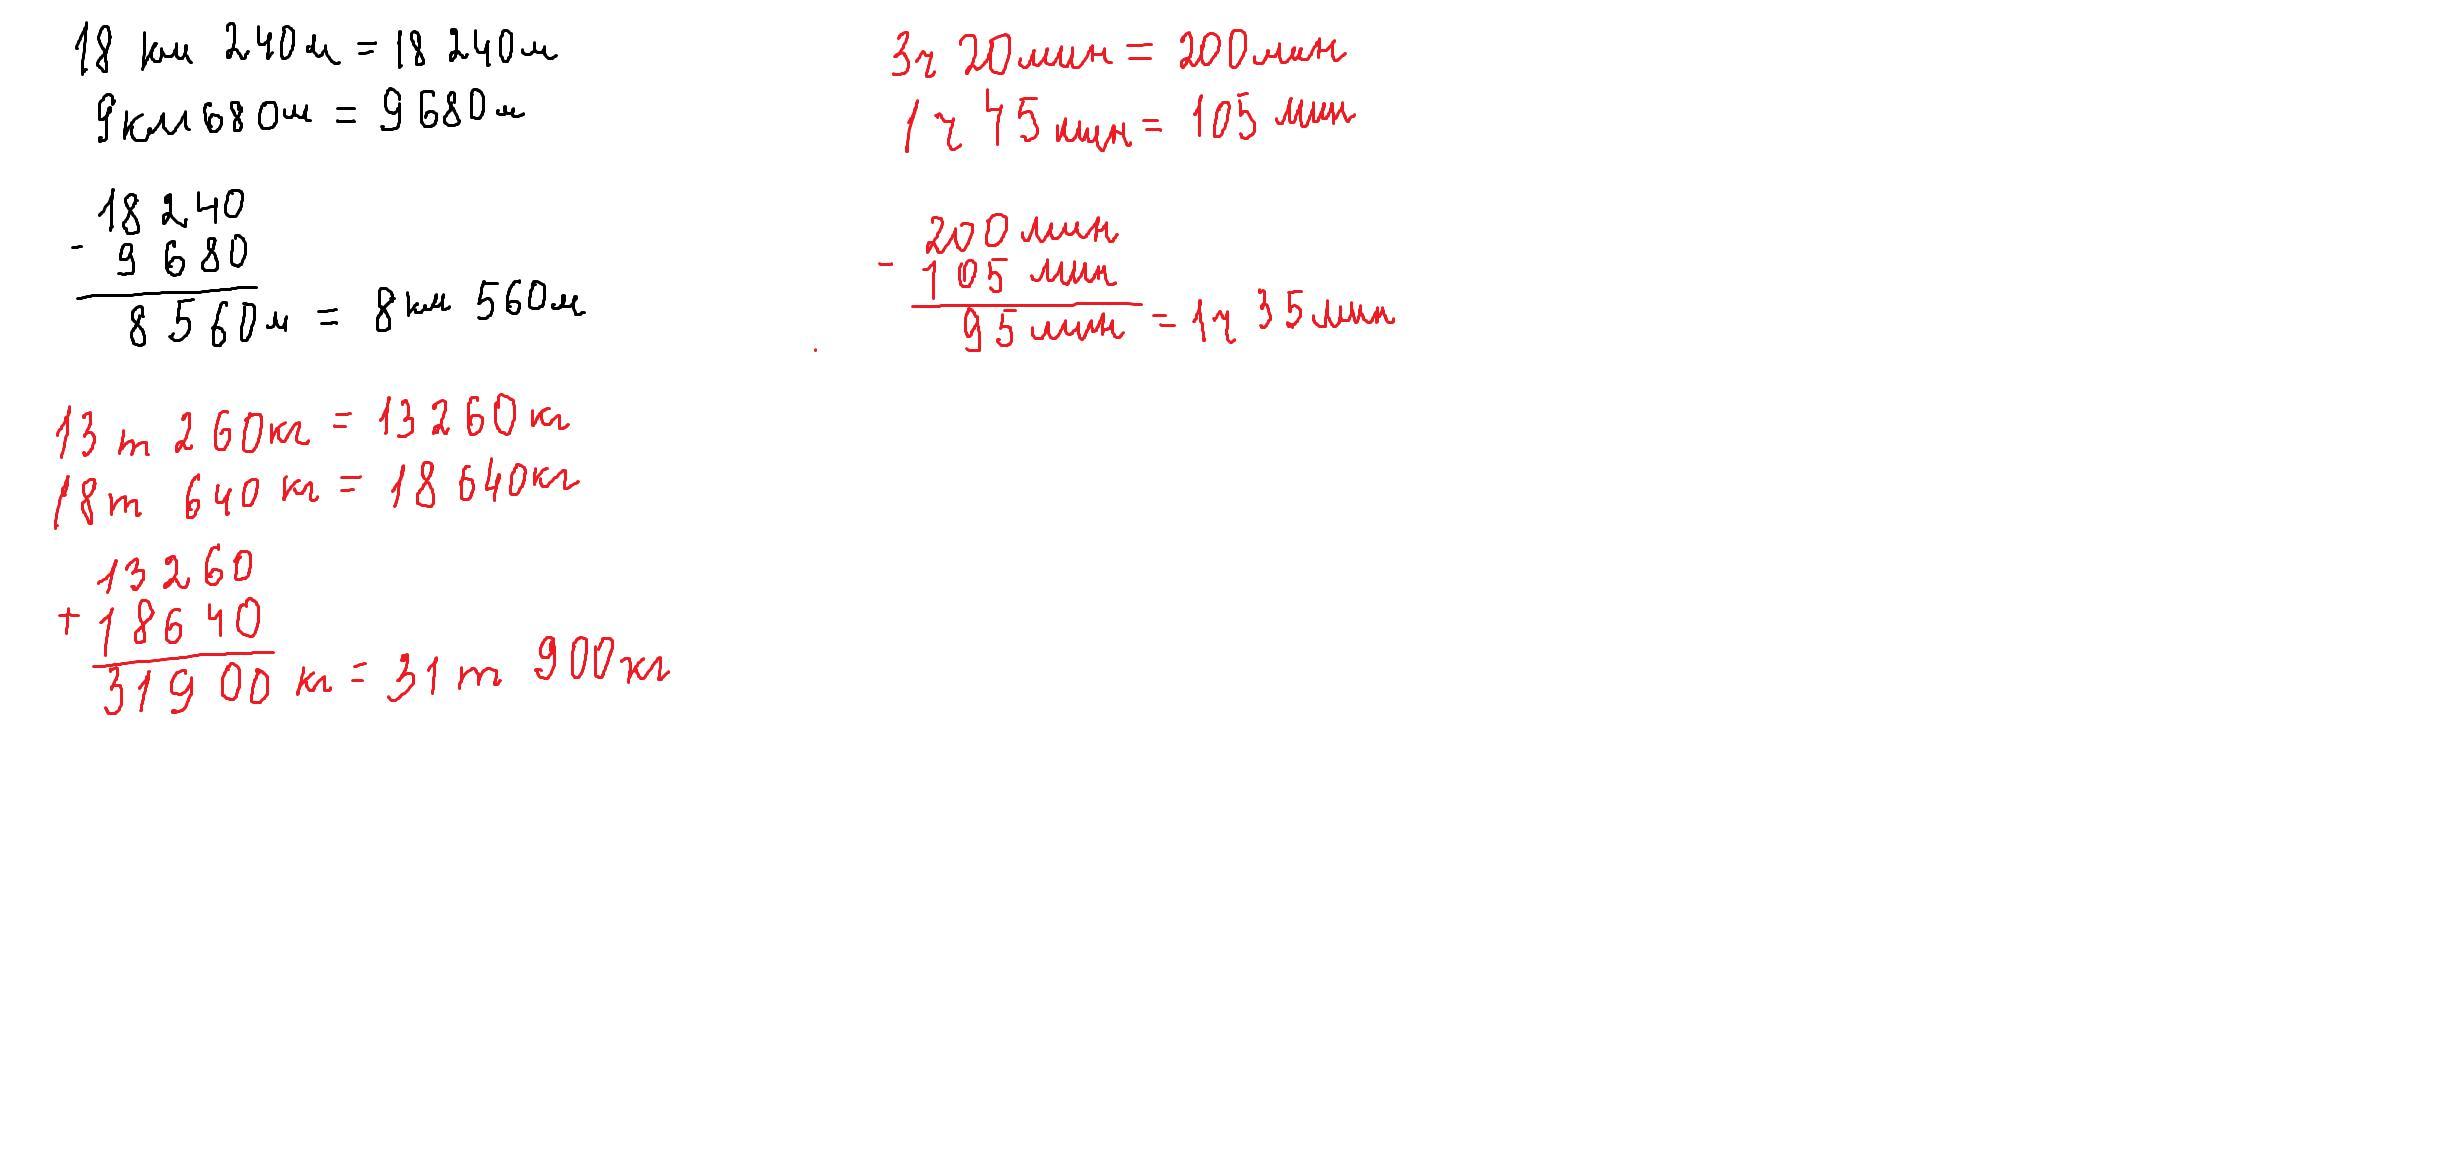 18 км 240м = 18 240м
9км680м = 9 680м
18 240
- 9 680
8 560м = 8км 560м
13 т 260кг = 13 260кг
18т 640 кг = 18 640кг
13 260
+ 18640
31 900 кг = 31 т 900кг
3ч 20мин = 200мин
1ч 45мин = 105 мин
200мин
- 105 мин
95мин = 1ч 35мин